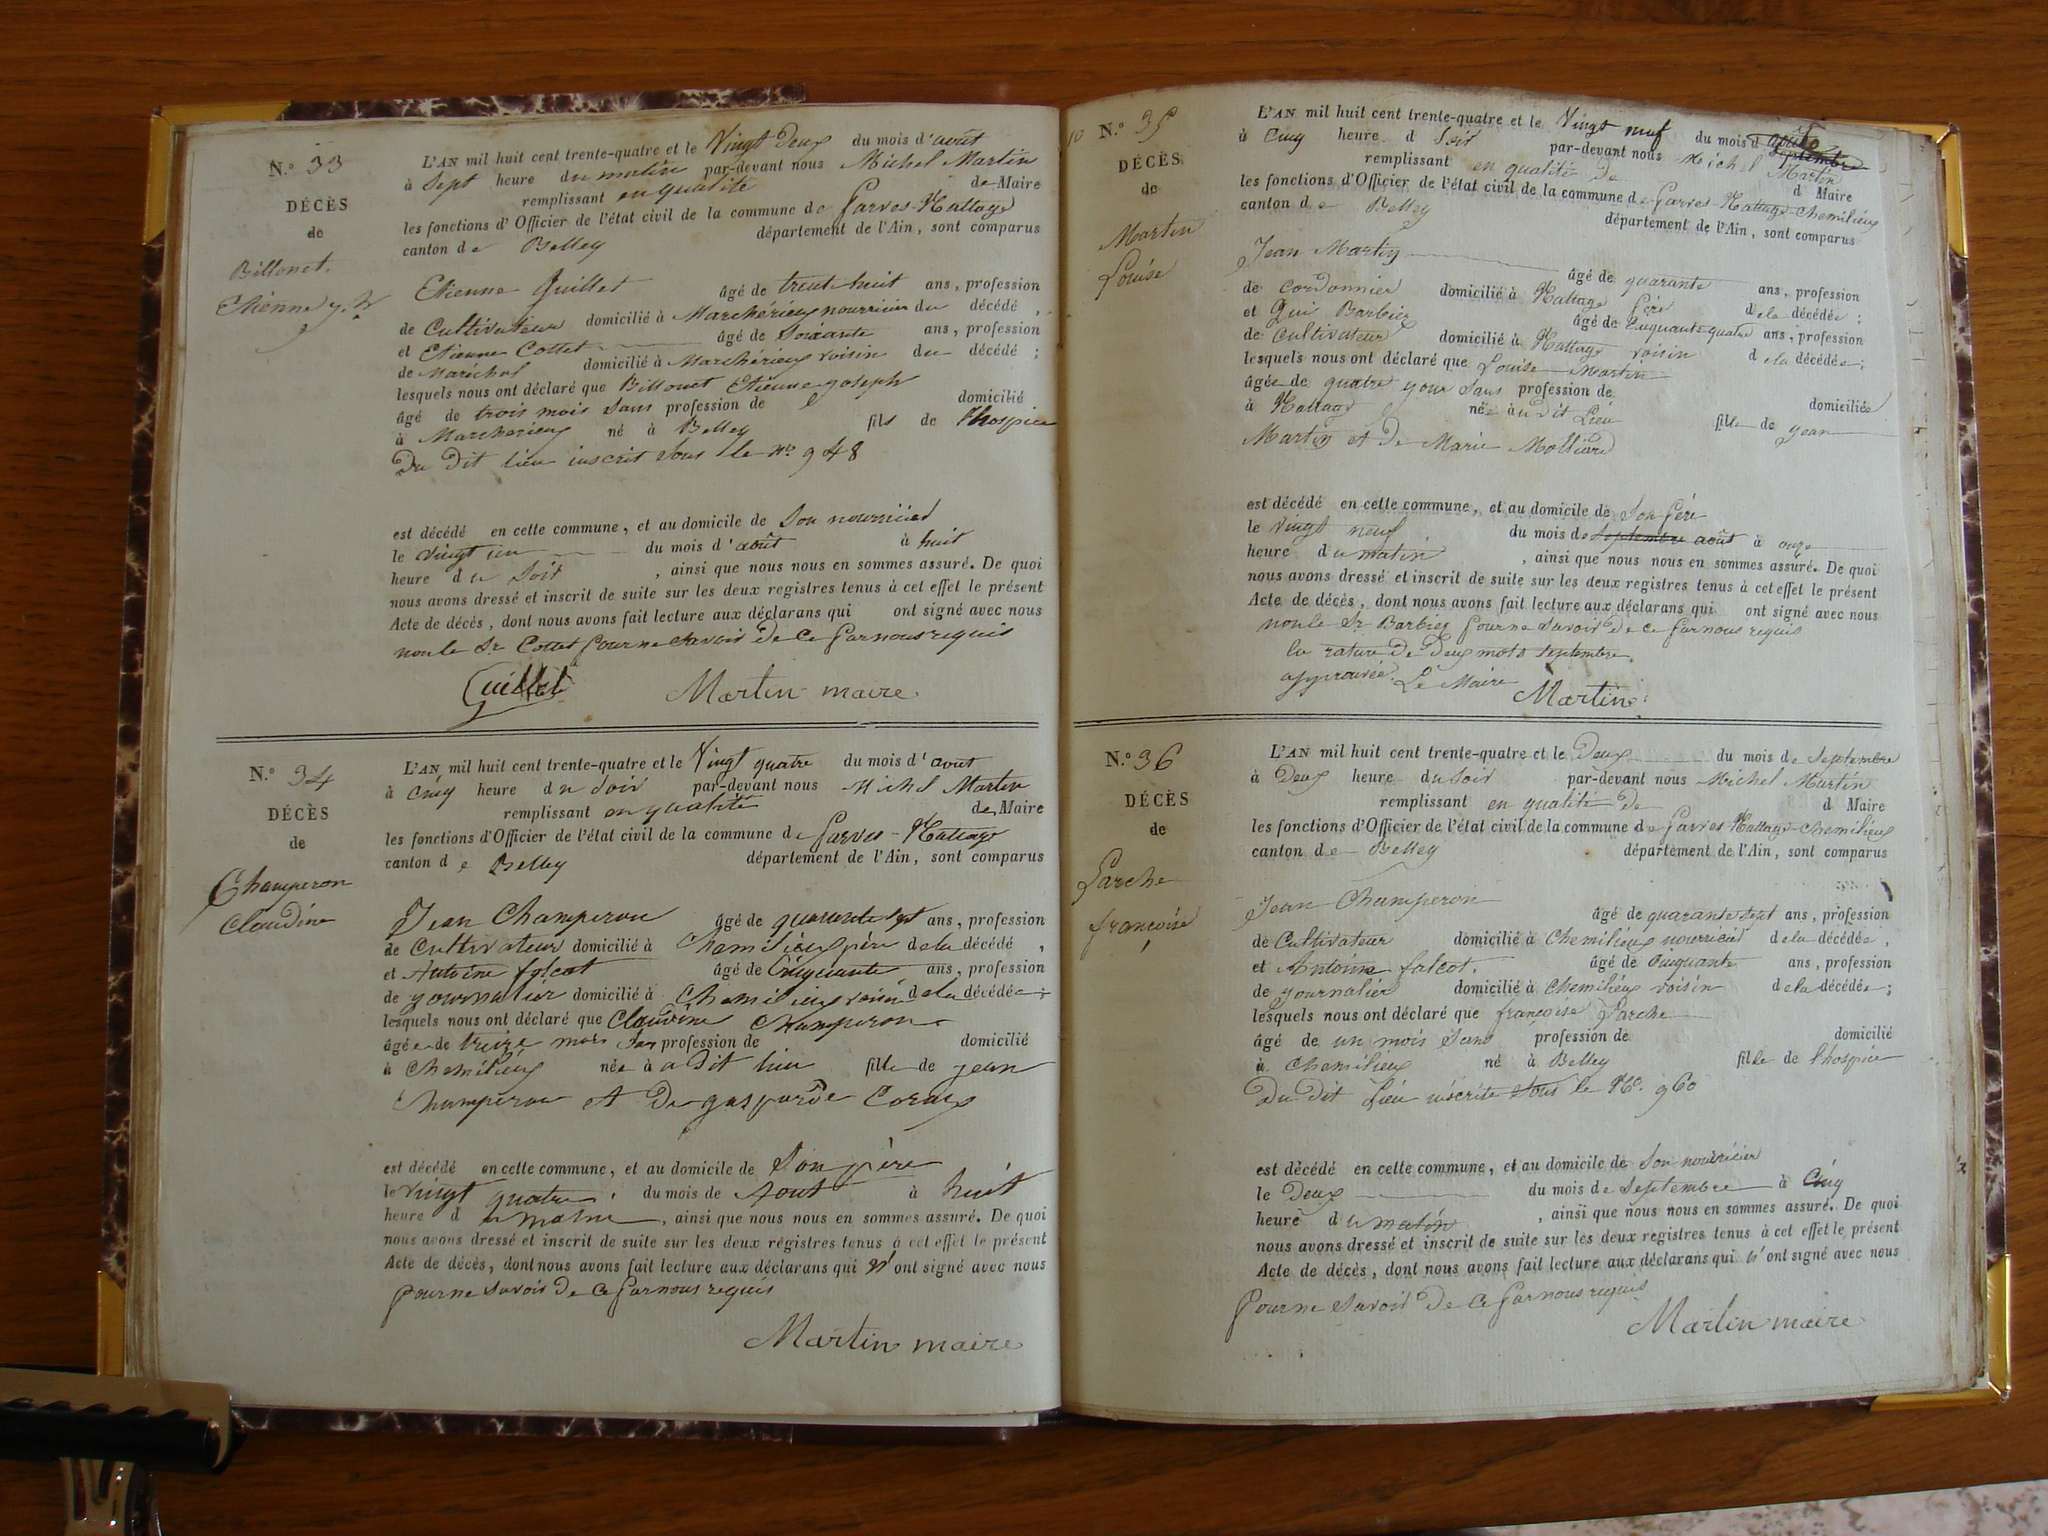 N.° 33
DÉCÈS
de
Billonet.
Etienne j.h
L'AN mil huit cent trente-quatre et le Vingt Deux du mois d'août
à Sept heure du matin par-devant nous Michel Martin
remplissant en qualité de Maire
les fonctions d'Officier de l'état civil de la commune de Parves-Nattage
canton de Belley département de l'Ain, sont comparus
Etienne Guillet âgé de trente huit ans, profession
de Cultivateur domicilié à Marchérieux nourricier du décédé,
et Etienne Cottet âgé de Soixante ans, profession
de Maréchal domicilié à Marchérieux voisin du décédé;
lesquels nous ont déclaré que Billonet Etienne joseph
âgé de trois mois Sans profession de domicilié
à Marcherieux né à Belley fils de l'hospice
Du Dit lieu inscrit Sous le no. 948
est décédé en cette commune, et au domicile de Son nourricier
le vingt un du mois d'août à huit
heure du Soir, ainsi que nous nous en sommes assuré. De quoi
nous avons dressé et inscrit de suite sur les deux registres tenus à cet effet le présent
Acte de décès, dont nous avons fait lecture aux déclarans qui ont signé avec nous
non le Sr Cottet pour ne Savoir De Ce par nous requis
Guillet Martin maire
N.° 34
DÉCÈS
de
Champeron
Claudine
L'AN mil huit cent trente-quatre et le Vingt quatre du mois d'août
à Cinq heure du Soir par-devant nous Michel Martin
remplissant en qualité de Maire
les fonctions d'Officier de l'état civil de la commune de Parves-Nattage
canton de Belley département de l'Ain, sont comparus
Jean Champeron âgé de quarante Sept ans, profession
de Cultivateur domicilié à Chemilieux père de la décédé,
et Antoine falcot âgé de Cinquante ans, profession
de journalier domicilié à Chemilieux voisin de la décédée;
lesquels nous ont déclaré que Claudine Champeron
âgée de treize mois San profession de domicilié
à Chemilieux née à a Dit lieu fille de jean
Champeron et De gasparde Coraix
est décédé en cette commune, et au domicile de Son père
le Vingt quatre du mois de Aout à huit
heure du matin, ainsi que nous nous en sommes assuré. De quoi
nous avons dressé et inscrit de suite sur les deux régistres tenus à cet effet le présent
Acte de décès, dont nous avons fait lecture aux déclarans qui n'ont signé avec nous
pour ne Savoir De Ce par nous requis
Martin maire
10 N.° 35
DÉCÈS
de
Martin
Louise
L'AN mil huit cent trente-quatre et le Vingt neuf du mois d'août septembre
à Cinq heure d Soir par-devant nous Michel Martin
remplissant en qualité de d Maire
les fonctions d'Officier de l'état civil de la commune de Parves-Nattage-Chemilieux
canton de Belley département de l'Ain, sont comparus
Jean Martin âgé de quarante ans, profession
de Cordonnier domicilié à Nattage père de la décédée;
et Gui Barbier âgé de Cinquante quatre ans, profession
de Cultivateur domicilié à Nattage voisin de la décédée;
lesquels nous ont déclaré que Louise Martin
âgée de quatre jour Sans profession de domiciliée
à Nattage née à u Dit Lieu fille de jean
Martin et De Marie Mollière
est décédé en cette commune, et au domicile de Son père
le Vingt neuf du mois de septembre août à onze
heure du matin, ainsi que nous nous en sommes assuré. De quoi
nous avons dressé et inscrit de suite sur les deux registres tenus à cet effet le présent
Acte de décès, dont nous avons fait lecture aux déclarans qui ont signé avec nous
non le Sr Barbier pour ne Savoir De ce par nous requis
la rature De Deux mots septembre
approuvée. Le Maire
Martin
N.° 36
DÉCÈS
de
Larche
françoise
L'AN mil huit cent trente-quatre et le Deux du mois de Septembre
à Deux heure du Soir par-devant nous Michel Martin
remplissant en qualité de d Maire
les fonctions d'Officier de l'état civil de la commune de Parves-Nattage-Chemilieux
canton de Belley département de l'Ain, sont comparus
Jean Champeron âgé de quarante Sept ans, profession
de Cultivateur domicilié à Chemilieux nourricier de la décédée,
et Antoine falcot. âgé de Cinquante ans, profession
de journalier domicilié à Chemilieux voisin de la décédée;
lesquels nous ont déclaré que françoise Larche
âgé de un mois Sans profession de domicilié
à Chemilieux né à Belley fille de l'hospice
Du Dit Lieu inscrite Sous le No. 960
est décédé en cette commune, et au domicile de Son nourricier
le Deux du mois de Septembre à Cinq
heure du matin, ainsi que nous nous en sommes assuré. De quoi
nous avons dressé et inscrit de suite sur les deux registres tenus à cet effet le présent
Acte de décès, dont nous avons fait lecture aux déclarans qui n'ont signé avec nous
pour ne Savoir De Ce par nous requis
Martin maire